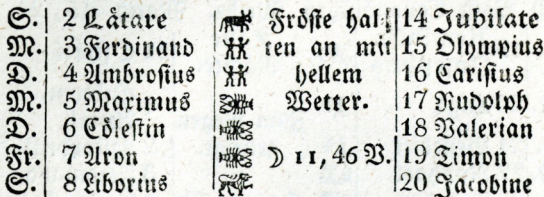 S. 2 Lätare Fröste hal- 14 Jubilate
M. 3 Ferdinand ten an mit 15 Olympius
D. 4 Ambrosius hellem 16 Carisius
M. 5 Maximus Wetter. 17 Rudolph
D. 6 Cölestin 18 Valerian
Fr. 7 Aron ☽ 11, 46 V. 19 Timon
S. 8 Liborius 20 Jacobine